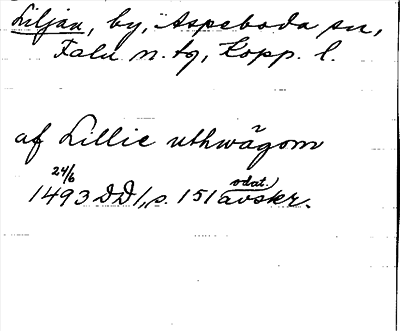 Liljan, by, Aspeboda sn,
Falu n. tg, Kopp. l.
af Lillie uthwägom
24/6
odat.
1493 DD1, s. 151 avskr.